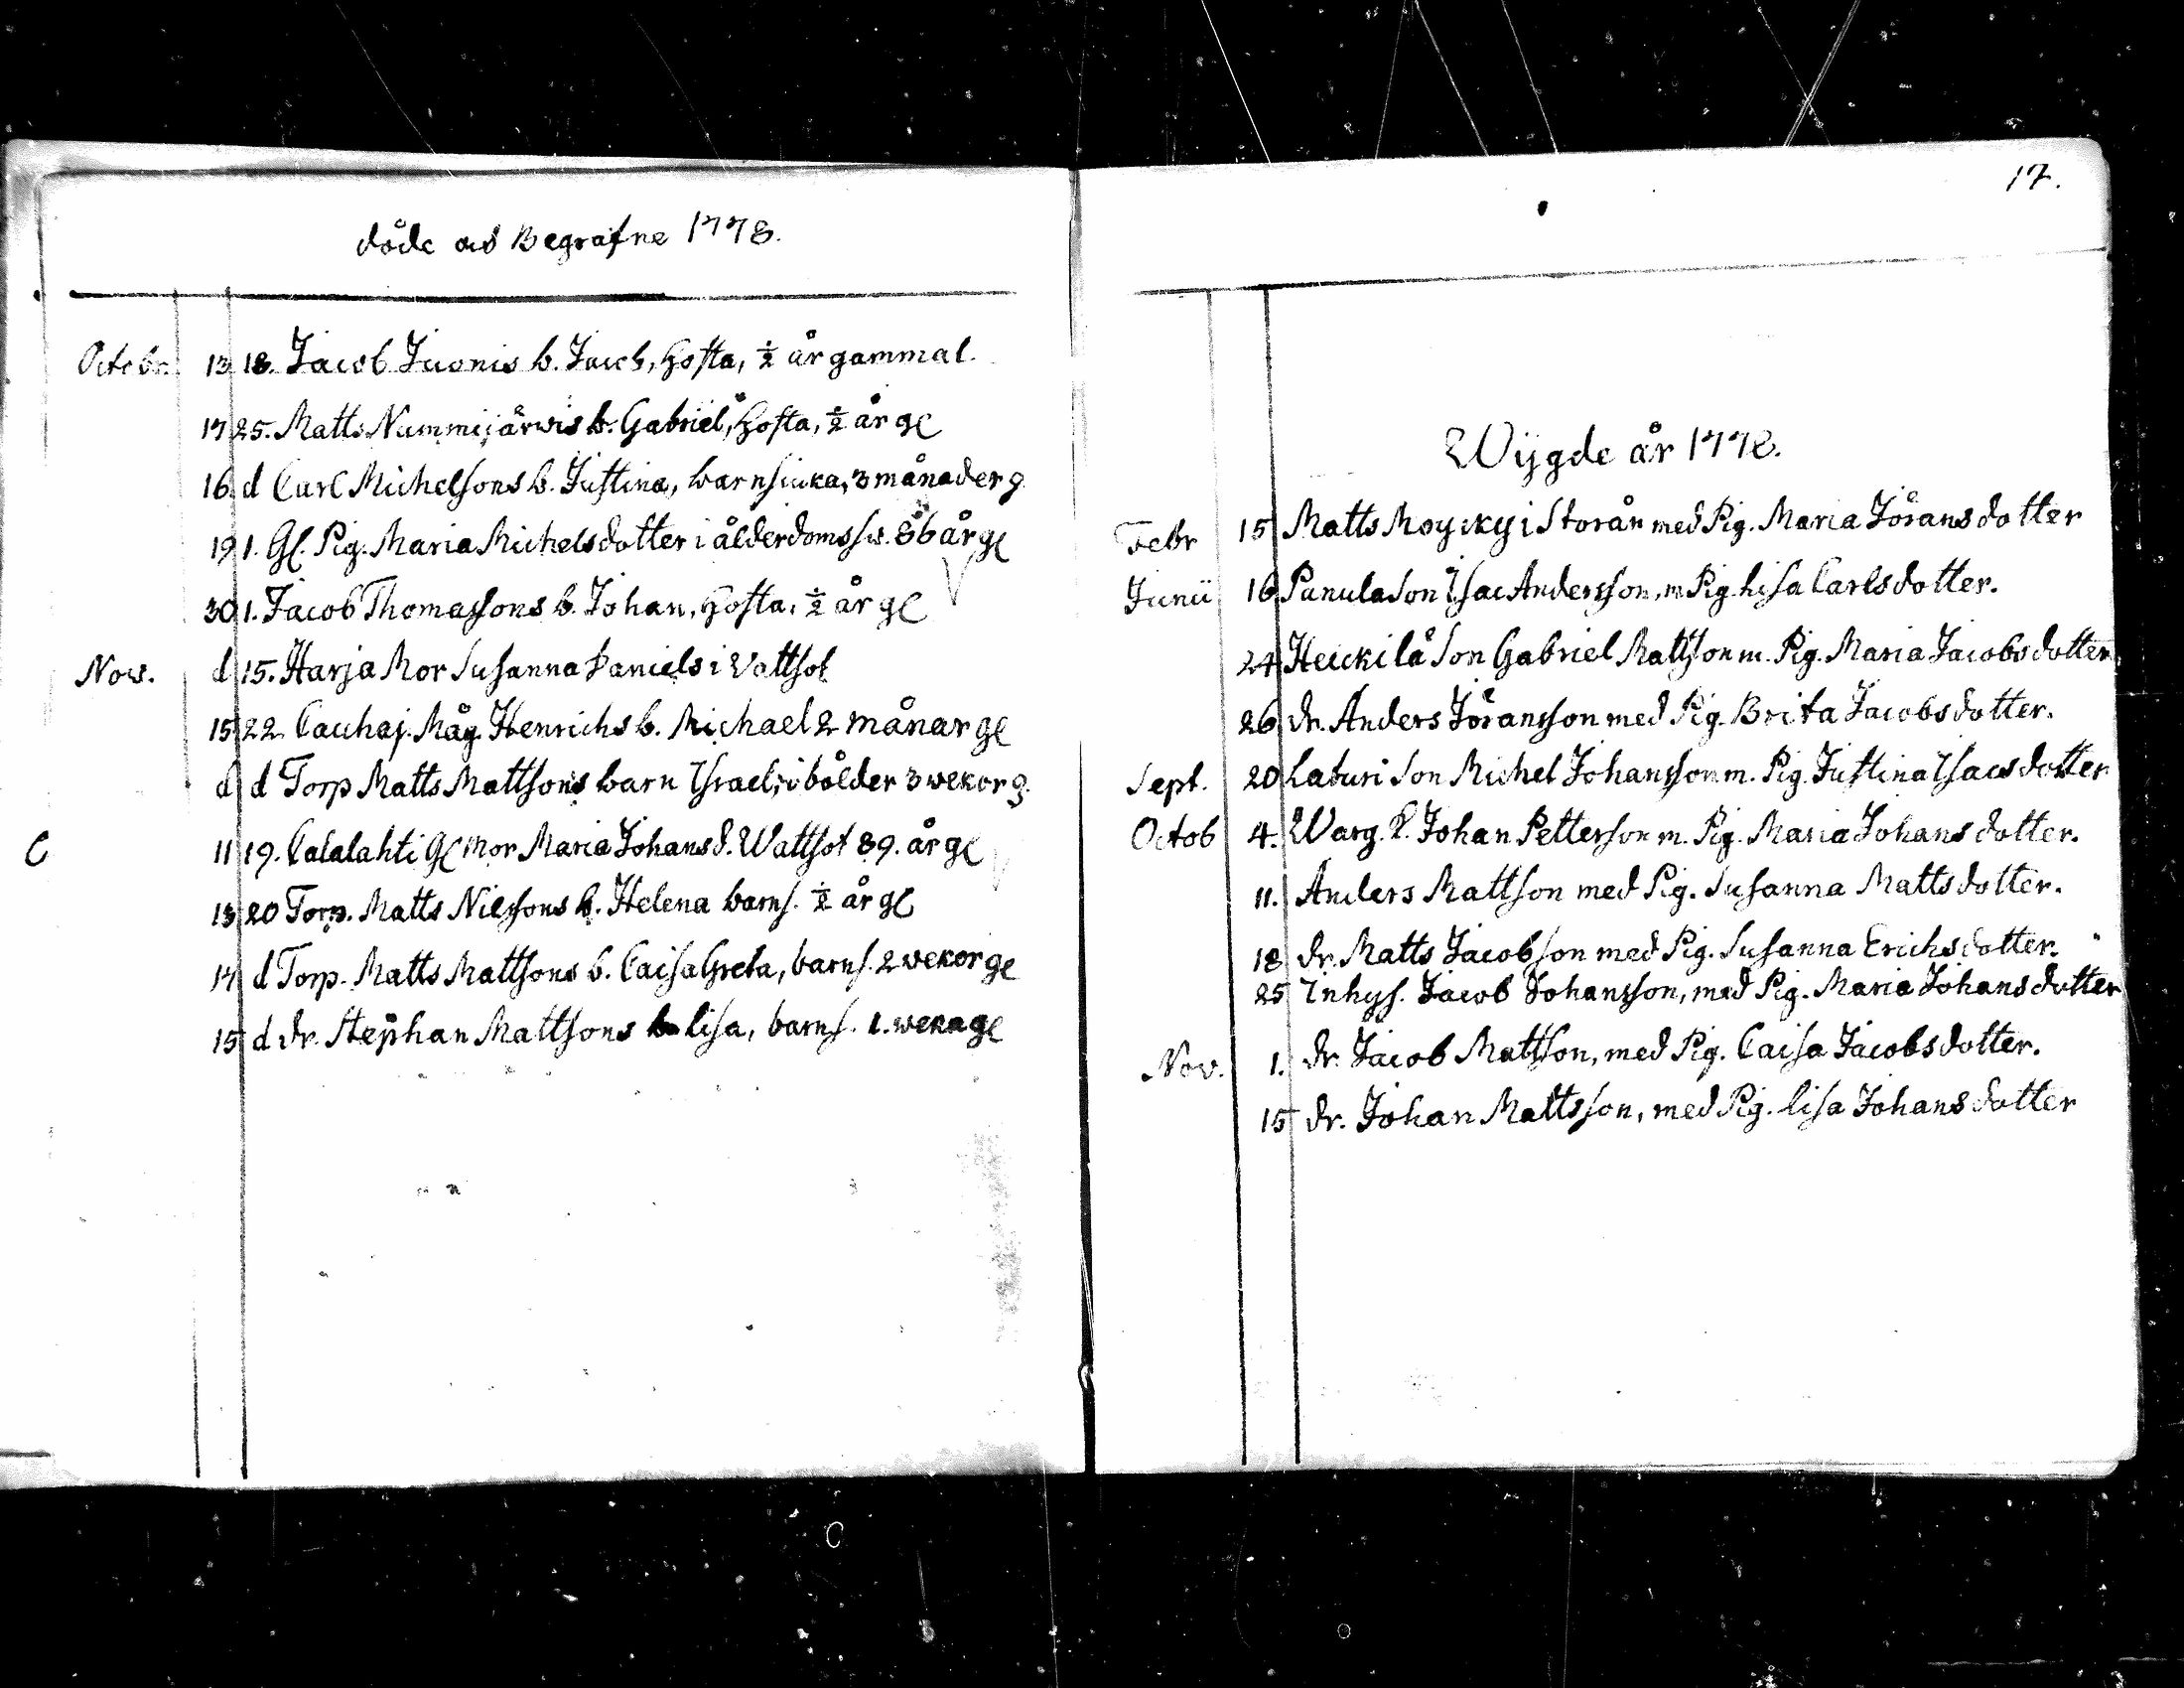 Döde och Begrafne 1778.
Octobr. 13 18. Jacob Juonis b. Jacob, Hosta, ½ år gammal.
17 25. Matts Nummijärwis b. Gabriel, Hosta, ½ år gl
16 d Carl Michelsons b. Justina, barnsiuka, 3 månader g.
19 1. Gl. Pig. Maria Michelsdotter i ålderdoms sw. 86 år gl
30 1. Jacob Thomassons b. Johan, Hosta, ½ år gl
Nov. d 15. Harja Mor Susanna Daniels i Vattsot
15 22 Cauhaj. Måg Henrichs b. Michael 2 månar gl
d d Torp Matts Mattsons barn Israel, i bölder 3 wekor g.
11 19. Calalahti Gl Mor Maria Johans d. Wattsot 89. år gl
13 20 Torp. Matts Nilssons b. Helena barns. ½ år gl
14 d Torp. Matts Mattsons b. Caisa Greta, barns. 2 wekor gl
15 d Dr. Stephan Mattsons b. Lisa, barns. 1. weka gl
17.
Wijgde år 1778.
Febr 15 Matts Moycky i Storån med Pig. Maria Jöransdotter
Junii 16 Panula Son Isac Andersson, m Pig. Lisa Carlsdotter.
24 Heickilä Son Gabriel Mattsson m. Pig. Maria Jacobsdotter.
26 Dr. Anders Jöransson med Pig. Brita Jacobsdotter.
Sept. 20 Laturi Son Michel Johansson m. Pig. Justina Isacsdotter
Octob 4. Warg. Johan Petterson m. Pig. Maria Johansdotter.
11. Anders Mattson med Pig. Susanna Mattsdotter.
18 Dr. Matts Jacobson med Pig. Susanna Erichsdotter.
25 Inhys. Jacob Johansson, med Pig. Maria Johansdotter
Nov. 1. Dr. Jacob Mattson, med Pig. Caisa Jacobsdotter.
15 Dr. Johan Mattsson, med Pig. Lisa Johansdotter